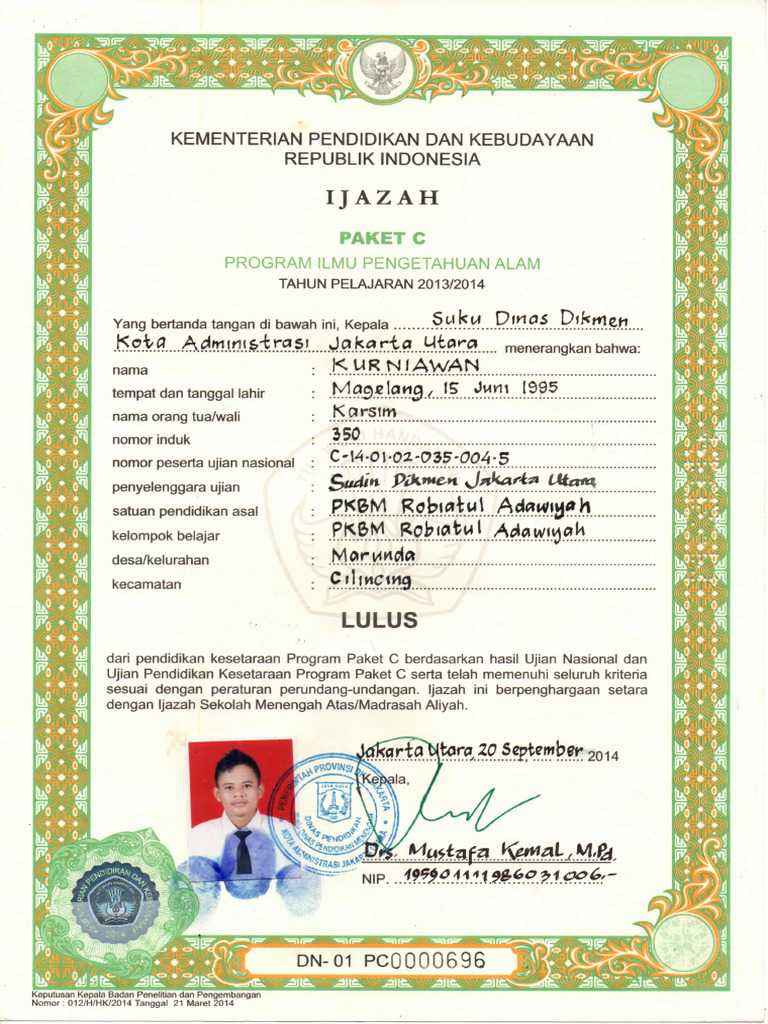 KEMENTERIAN PENDIDIKAN DAN KEBUDAYAAN
REPUBLIK INDONESIA
IJAZAH
PAKET C
PROGRAM ILMU PENGETAHUAN ALAM
TAHUN PELAJARAN 2013/2014
Yang bertanda tangan di bawah ini, Kepala Suku Dinas Dikmen
Kota Administrasi Jakarta Utara menerangkan bahwa:
nama : KURNIAWAN
tempat dan tanggal lahir : Magelang, 15 Juni 1995
nama orang tua/wali : Karsim
nomor induk : 350
nomor peserta ujian nasional : C-14-01-02-035-004-5
penyelenggara ujian : Sudin Dikmen Jakarta Utara
satuan pendidikan asal : PKBM Robiatul Adawiyah
kelompok belajar : PKBM Robiatul Adawiyah
desa/kelurahan : Marunda
kecamatan : Cilincing
LULUS
dari pendidikan kesetaraan Program Paket C berdasarkan hasil Ujian Nasional dan
Ujian Pendidikan Kesetaraan Program Paket C serta telah memenuhi seluruh kriteria
sesuai dengan peraturan perundang-undangan. Ijazah ini berpenghargaan setara
dengan Ijazah Sekolah Menengah Atas/Madrasah Aliyah.
Jakarta Utara, 20 September 2014
Kepala,
PEMERINTAH PROVINSI DKI JAKARTA
DINAS PENDIDIKAN
KOTA ADMINISTRASI JAKARTA
Drs. Mustafa Kemal, M.Pd.
NIP. 195901111986031006,-
DN- 01 PC0000696
Keputusan Kepala Badan Penelitian dan Pengembangan
Nomor : 012/H/HK/2014 Tanggal 21 Maret 2014